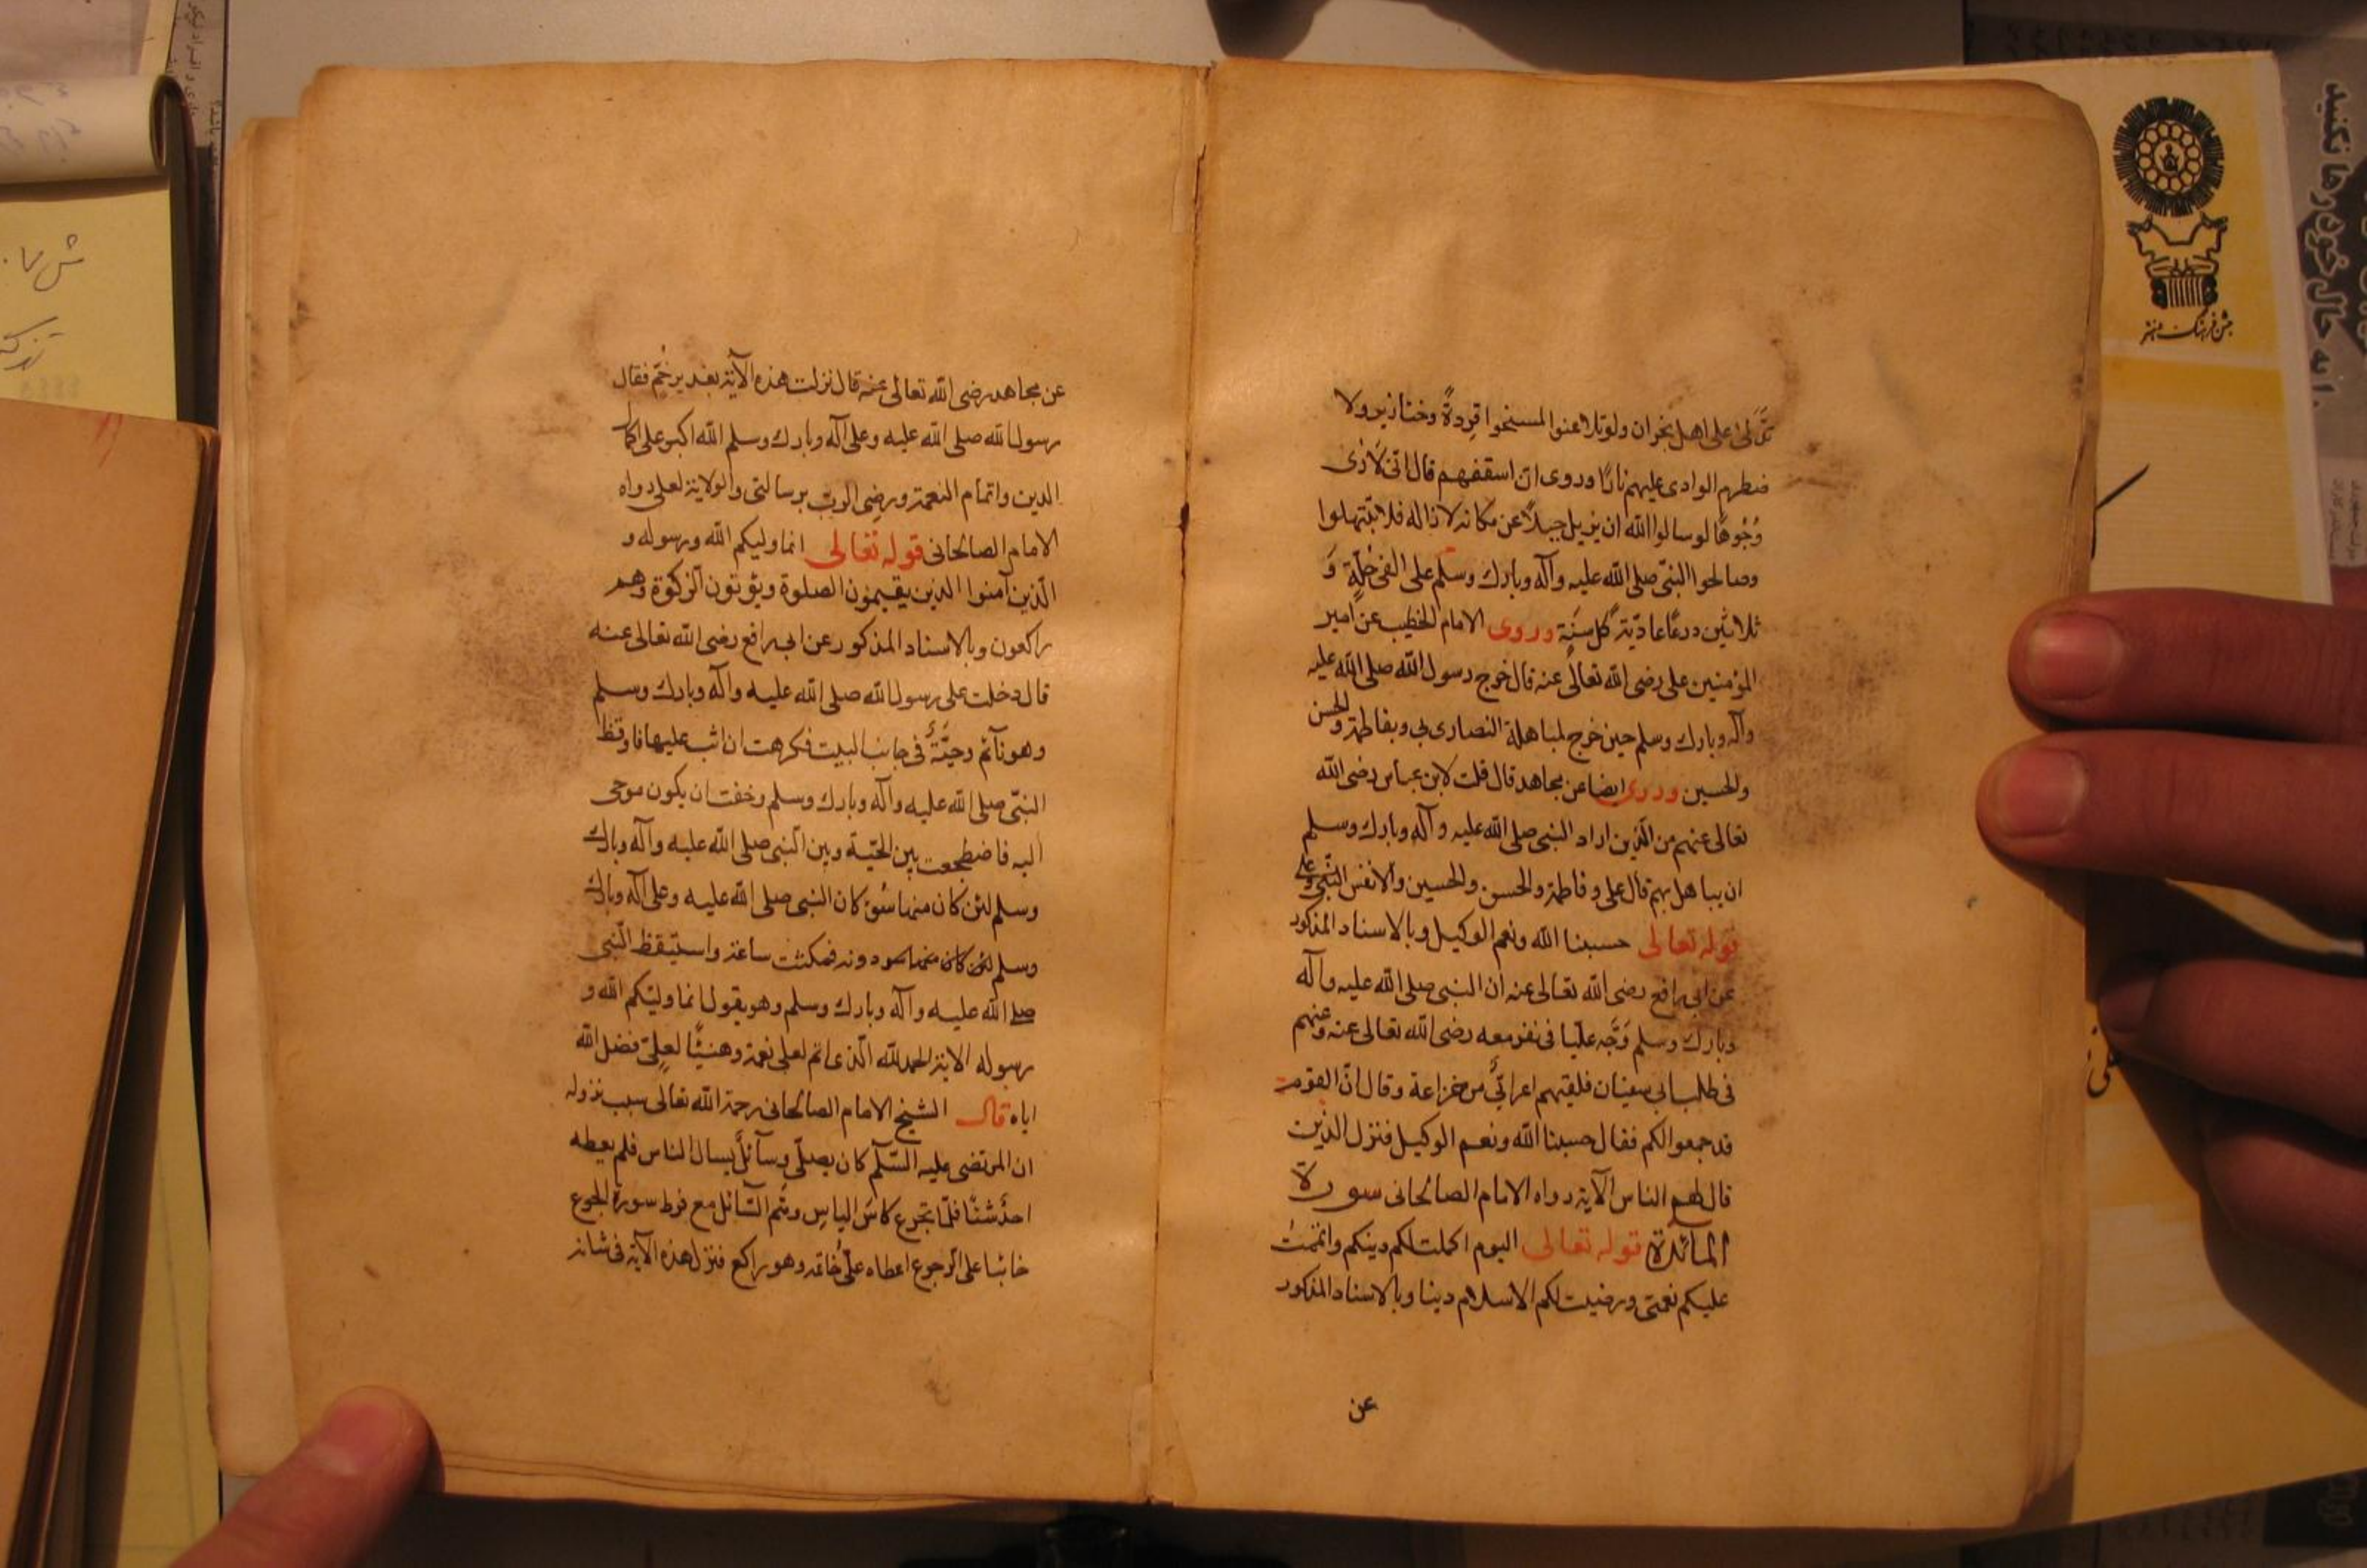 تدلى على اهل نجران ولو تلاعنوا لمسخوا قردةً وخنازير ولا
ضطرم الوادى عليهم نارًا وروى ان اسقفهم قال انى لارى
وُجُوهًا لو سالوا الله ان يزيل جبلًا عن مكانه لازاله فلا تبتهلوا
وصالحوا النبىّ صلى الله عليه وآله وبارك وسلم على الفى حُلّةٍ وَ
ثلاثين درعًا عاديّة كل سَنَة وروى الامام الخطيب عن امير
المؤمنين على رضى الله تعالى عنه قال خرج رسول الله صلى الله عليه
وآله وبارك وسلم حين خرج لمباهلة النصارى بى وبفاطمة والحسن
والحسين وروى ايضا عن مجاهد قال قلت لابن عباس رضى الله
تعالى عنهم من الّذين اراد النبى صلى الله عليه وآله وبارك وسلم
ان يباهل بهم قال على وفاطمة والحسن والحسين والانفس النبّى وعلى
قوله تعالى حسبنا الله ونعم الوكيل وبالاسناد المذكور
عن ابى رافع رضى الله تعالى عنه ان النبى صلى الله عليه وآله
وبارك وسلم وَجَّه عليّا فى نفر معه رضى الله تعالى عنه وعنهم
فى طلب ابى سفيان فلقيهم اعرابىٌّ من خزاعة وقال انّ القوم
قد جمعوا لكم فقال حسبنا الله ونعم الوكيل فنزل الذين
قال لهم الناس الآية رواه الامام الصالحانى سورة
المائدة قوله تعالى اليوم اكملت لكم دينكم واتممت
عليكم نعمتى ورضيت لكم الاسلام دينا وبالاسناد المذكور
عن
عن مجاهد رضى الله تعالى عنه قال نزلت هذه الآية بغدير خُمّ فقال
رسول الله صلى الله عليه وعلى آله وبارك وسلم الله اكبر على اكمال
الدين واتمام النعمة ورضى الربّ برسالتى والولاية لعلى رواه
الامام الصالحانى قوله تعالى انما وليكم الله ورسوله و
الّذين آمنوا الذين يقيمون الصلوة ويؤتون الزكوة وهم
راكعون وبالاسناد المذكور عن ابى رافع رضى الله تعالى عنه
قال دخلت على رسول الله صلى الله عليه وآله وبارك وسلم
وهو نآئم وحيّةٌ فى جانب البيت فكرهت ان اثب عليها فاوقظ
النبّى صلى الله عليه وآله وبارك وسلم وخفت ان يكون موحى
اليه فاضطجعت بين الحيّة وبين النّبى صلى الله عليه وآله وبارك
وسلم لئن كان منها سُوءٌ كان النبى صلى الله عليه وعلى آله وبارك
وسلم لئن كان دونه فمكثت ساعة واستيقظ النّبى
صلى الله عليه وآله وبارك وسلم وهو يقول انما وليّكم الله و
رسوله الاية الحمد لله الّذى اتم لعلى نعمة وهنيئًا لعلىّ فضل الله
اياه قال الشيخ الامام الصالحانى رحمة الله تعالى سبب نزوله
ان المرتضى عليه السّلم كان يصلّى وسآئلٌ يسال الناس فلم يعطه
احدٌ شئًا فلمّا تجرع كاسَ الياس السّائل مع فرط سورة الجوع
خائبا على الرجوع اعطاه علىٌّ خاتمه وهو راكع فنزل هذه الآية فى شانه
جشن فرهنگ و هنر